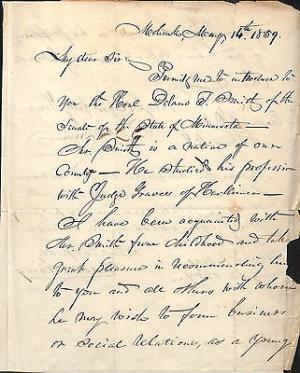 Mohawk, May 14th 1859.
My dear Sir:
Permit me to introduce to
you the Hon. Delano T. Smith of the
Senate of the State of Minnesota—
Mr. Smith is a native of our
County— He studied his profession
with Judge Graves of Herkimer—
I have been acquainted with
Mr. Smith from childhood and take
great pleasure in recommending him
to you and all others with whom
he may wish to form business
or social relations, as a young